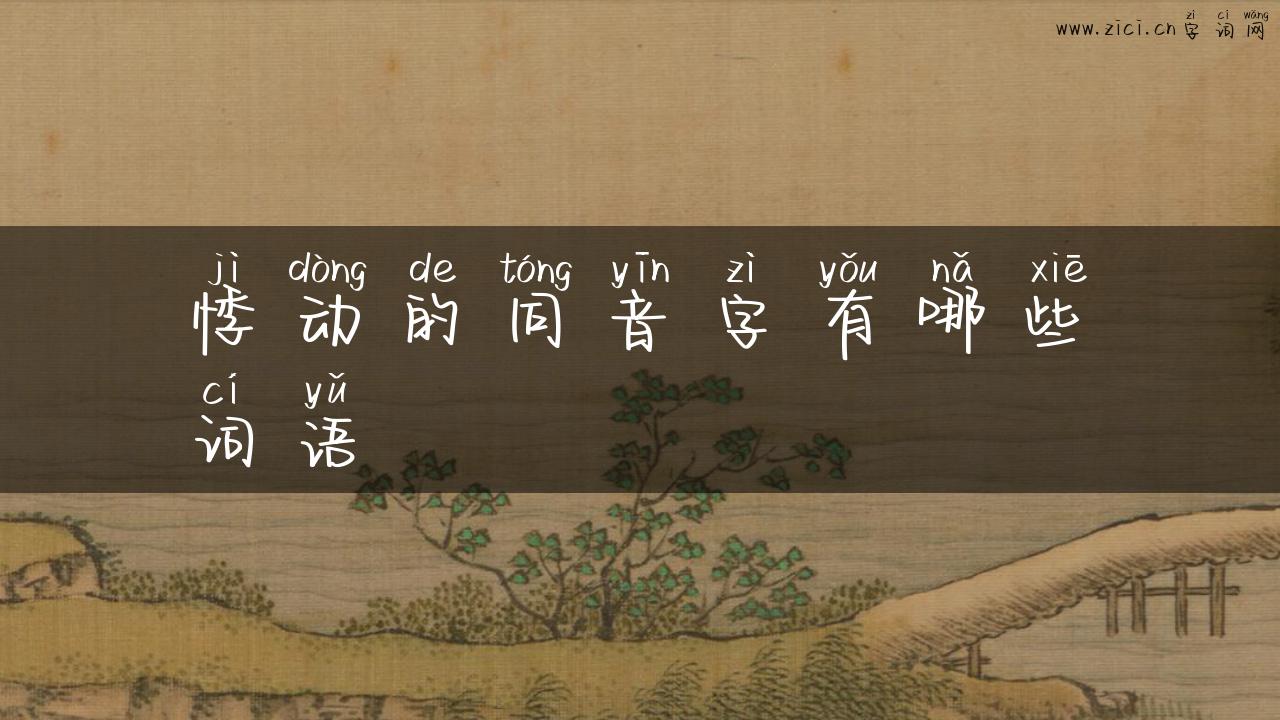 zì cí wǎng
www.zici.cn 字词网
jì dòng de tóng yīn zì yǒu nǎ xiē
悸动的同音字有哪些
cí yǔ
词语